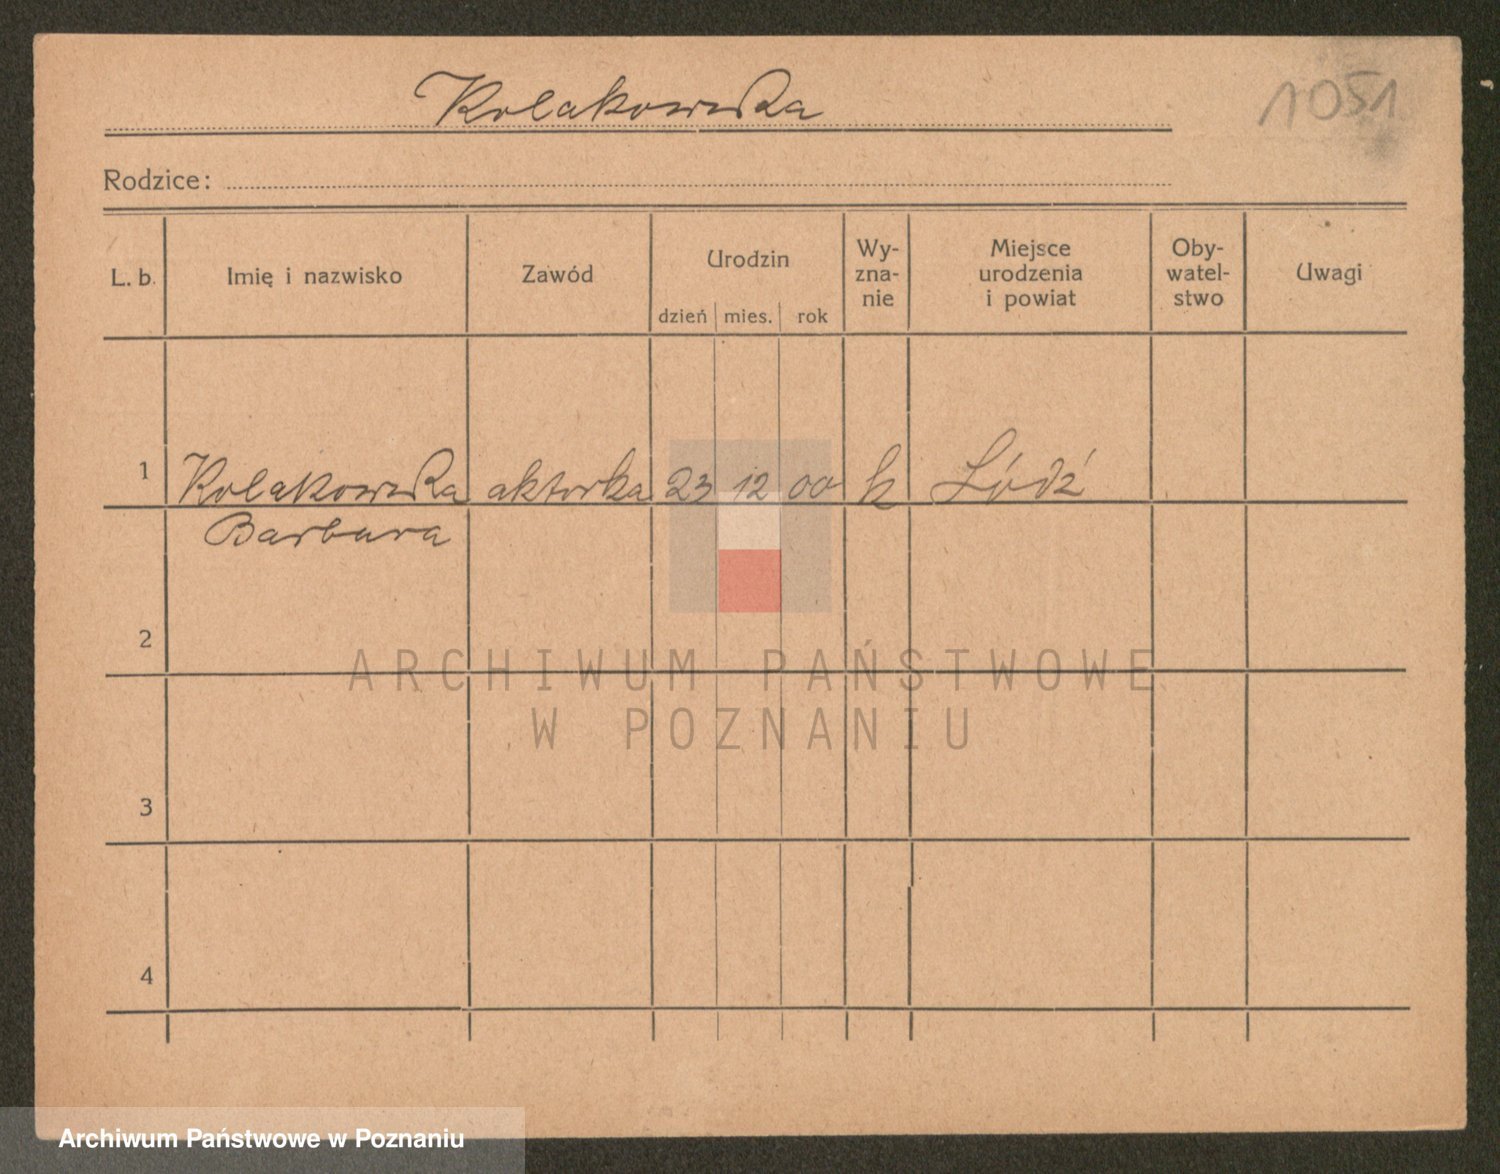 Kolakowska
1051
Rodzice:
L. b.
Imię i nazwisko
Zawód
Urodzin
dzień mies. rok
Wy-
zna-
nie
Miejsce
urodzenia
i powiat
Oby-
watel-
stwo
Uwagi
1 Kolakowska aktorka 23 12 00 k Łódź
Barbara
2
ARCHIWUM PAŃSTWOWE
W POZNANIU
3
4
Archiwum Państwowe w Poznaniu